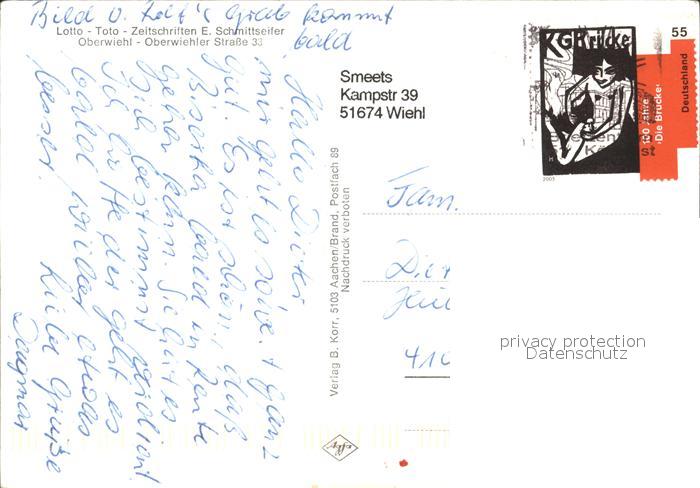 Bild v. Rolf's Grab kommt
bald
Lotto - Toto - Zeitschriften E. Schmittseifer
Oberwiehl - Oberwiehler Straße 33
Hallo Dieter
mir geht es soweit ganz
gut. Es ist schön, daß
bald in Rente
gehen kann. Sie hat es
sich bestimmt verdient
Ich hoffe der geht es
bald wieder etwas
besser.
Liebe Grüße
Dagmar
Smeets
Kampstr 39
51674 Wiehl
Verlag B. Korr, 5103 Aachen/Brand, Postfach 89
Nachdruck verboten
KG Brücke
55
Deutschland
100 Jahre
›Die Brücke‹
2005
Fam.
410
privacy protection
Datenschutz